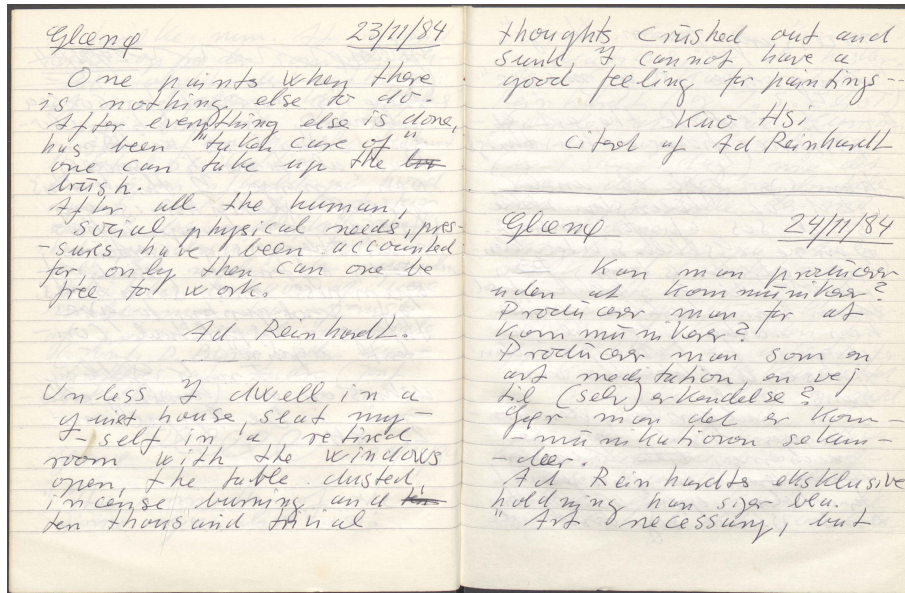 Glænø 23/11/84
One paints when there
is nothing else to do.
After everything else is done,
has been "taken care of"
one can take up the
brush.
After all the human,
social physical needs, pres-
-sures have been accounted
for, only then can one be
free to work.
Ad Reinhardt.
Unless I dwell in a
quiet house, seat my-
-self in a retired
room with the windows
open, the table dusted,
incense burning, and
ten thousand trivial
thoughts crushed out and
sunk, I cannot have a
good feeling for paintings--
Kuo Hsi
citeret af Ad Reinhardt
Glænø 24/11/84
Kan man producerer
uden at kommunikerer?
Producerer man for at
kommunikerer?
Producerer man som en
art meditation, en vej
til (selv) erkendelse?
Gør man det er kom-
-munikationen sekun-
-deer.
Ad Reinhardts eksklusive
holdning han siger bla.
"Art necessary, but